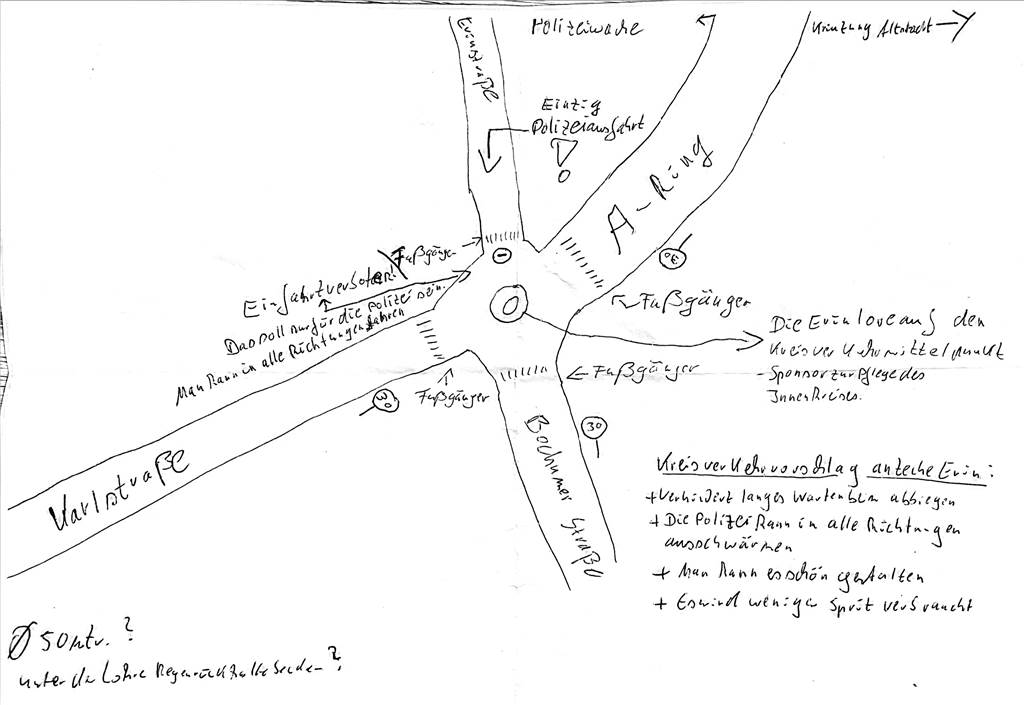 Erinstraße
Polizeiwache
Kreuzung Altstadt
Einzig
Polizeiausfahrt
!
A-Ring
Fußgänger
Einfahrtverboten!
Das soll nur für die Polizei sein.
Man kann in alle Richtungen fahren
30
Fußgänger
Die Erinlore auf den
Kreisverkehrsmittelpunkt
- Sponsor zur Pflege des
Innenkreises.
Fußgänger
Fußgänger
30
30
Karlstraße
Bochumer Straße
Kreisverkehrvorschlag anteche Erin:
+ Verhindert langes Warten beim abbiegen
+ Die Polizei kann in alle Richtungen
ausschwärmen
+ Man kann es schön gestalten
+ Es wird weniger Sprit verbraucht
Ø 50 mtr. ?
unter die Lohre Regenrückhaltebecken?